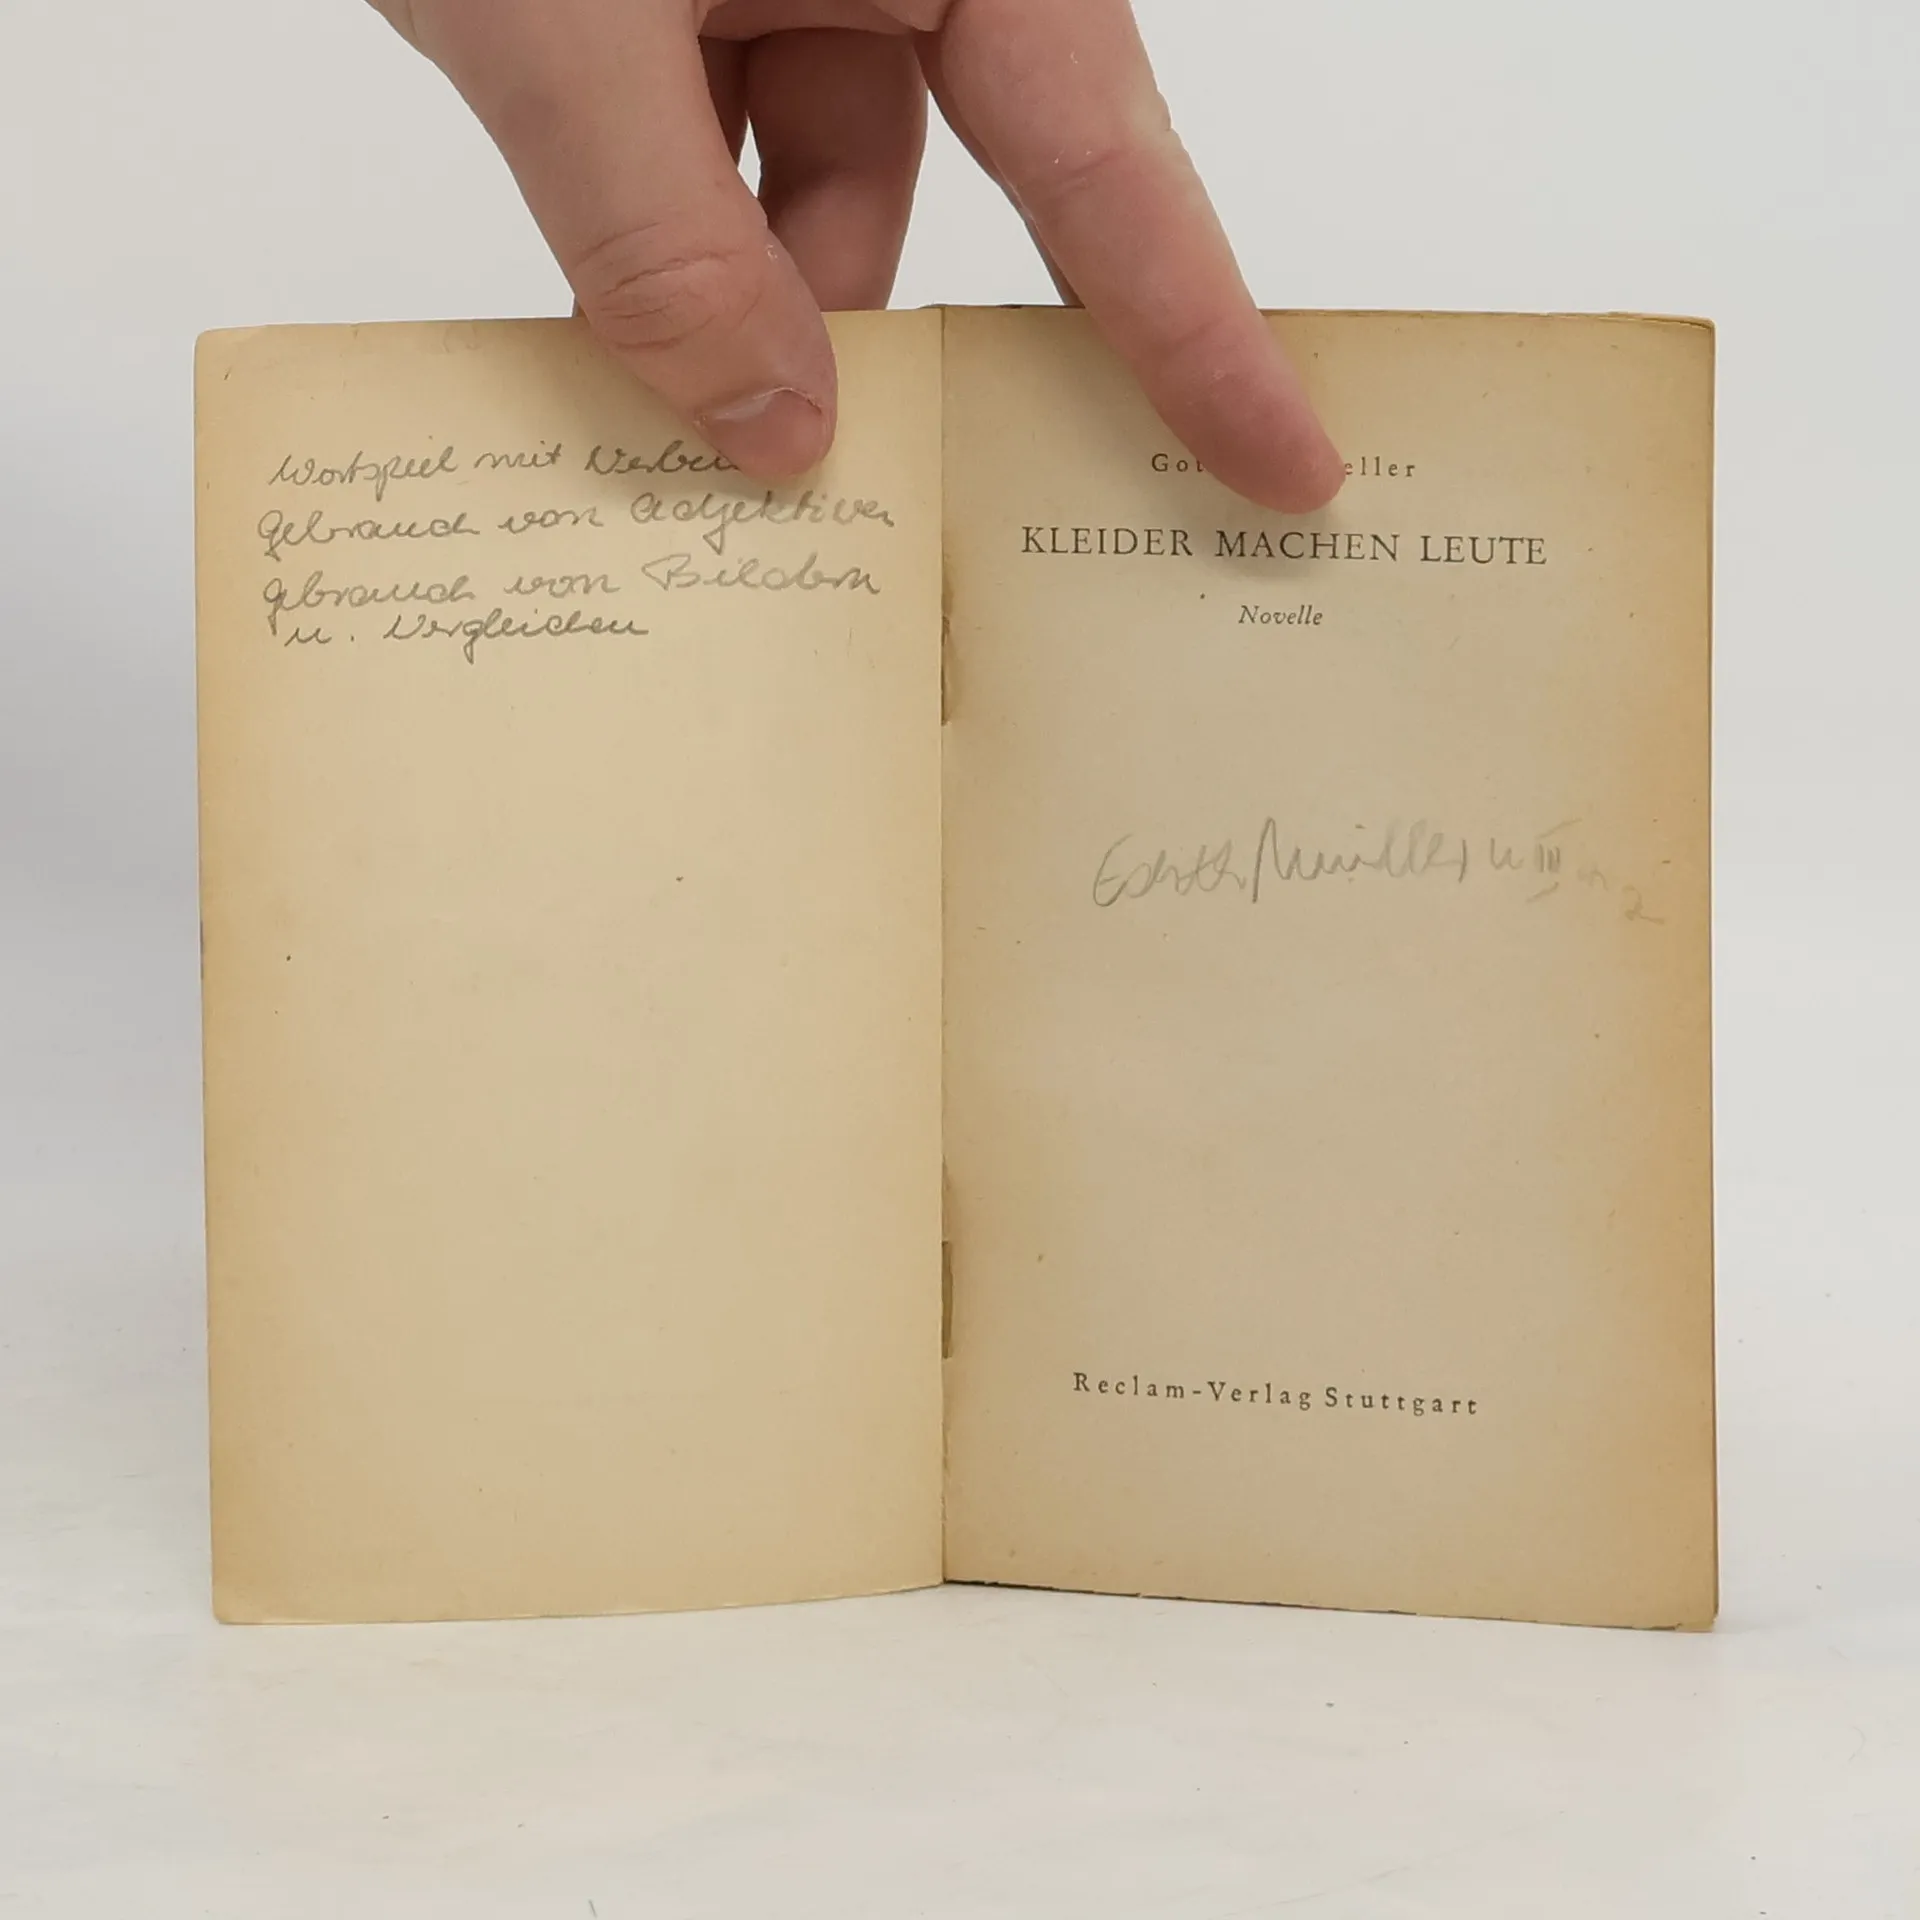 Wortspiel mit Verben
Gebrauch von Adjektiven
Gebrauch von Bildern
u. Vergleichen
Got eller
KLEIDER MACHEN LEUTE
Novelle
Edith Müller u III 2
Reclam-Verlag Stuttgart